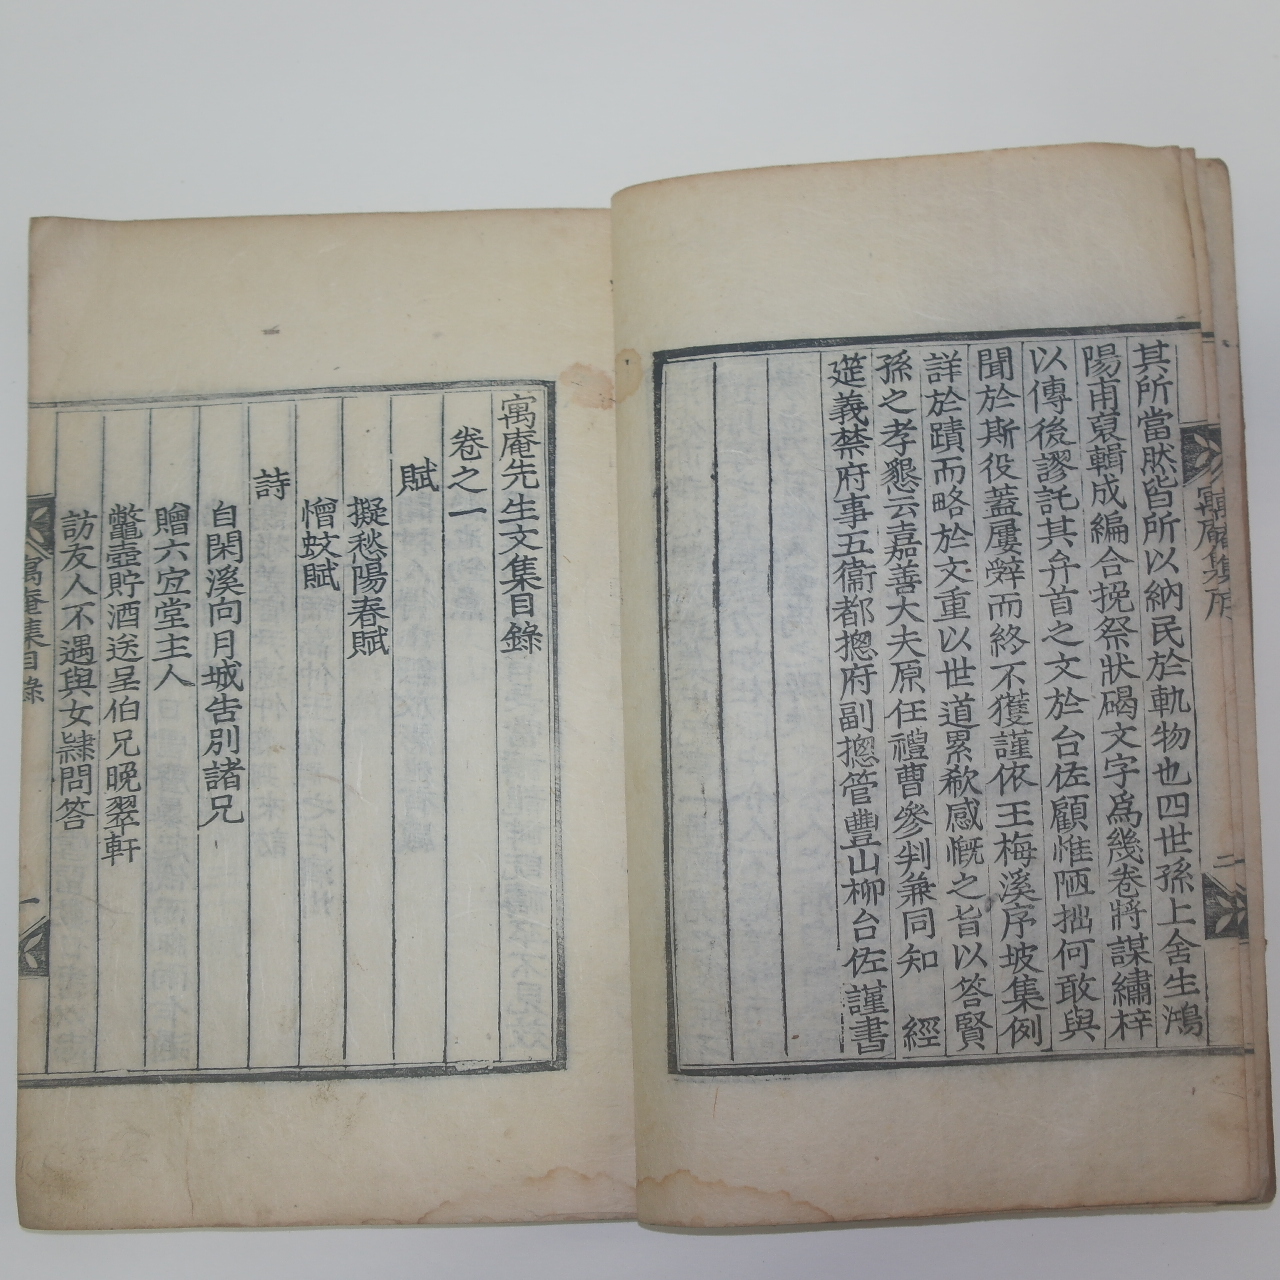 其所當然皆所以納民於軌物也四世孫上舍生鴻
陽甫裒輯成編合挽祭狀碣文字爲幾卷將謀繡梓
以傳後謬託其弁首之文於台佐顧惟陋拙何敢與
聞於斯役蓋屢辤而終不獲謹依王梅溪序坡集例
詳於蹟而略於文重以世道累欷感慨之旨以答賢
孫之孝懇云嘉善大夫原任禮曹參判兼同知 經
筵義禁府事五衞都摠府副摠管豊山柳台佐謹書
寓庵集序
二
寓庵先生文集目錄
卷之一
賦
擬愁陽春賦
憎蚊賦
詩
自閑溪向月城告別諸兄
贈六宜堂主人
鼈壺貯酒送呈伯兄晚翠軒
訪友人不遇與女隷問答
寓庵集目錄
一